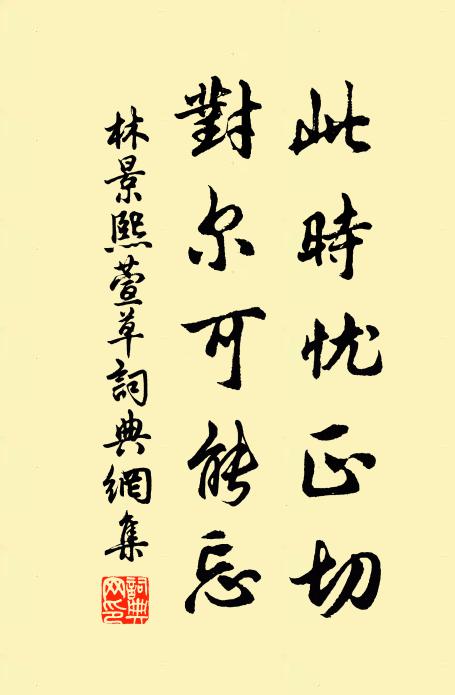 此時忧正切
對尔可能忘
林景熙萱草詞典網集
詞典网印